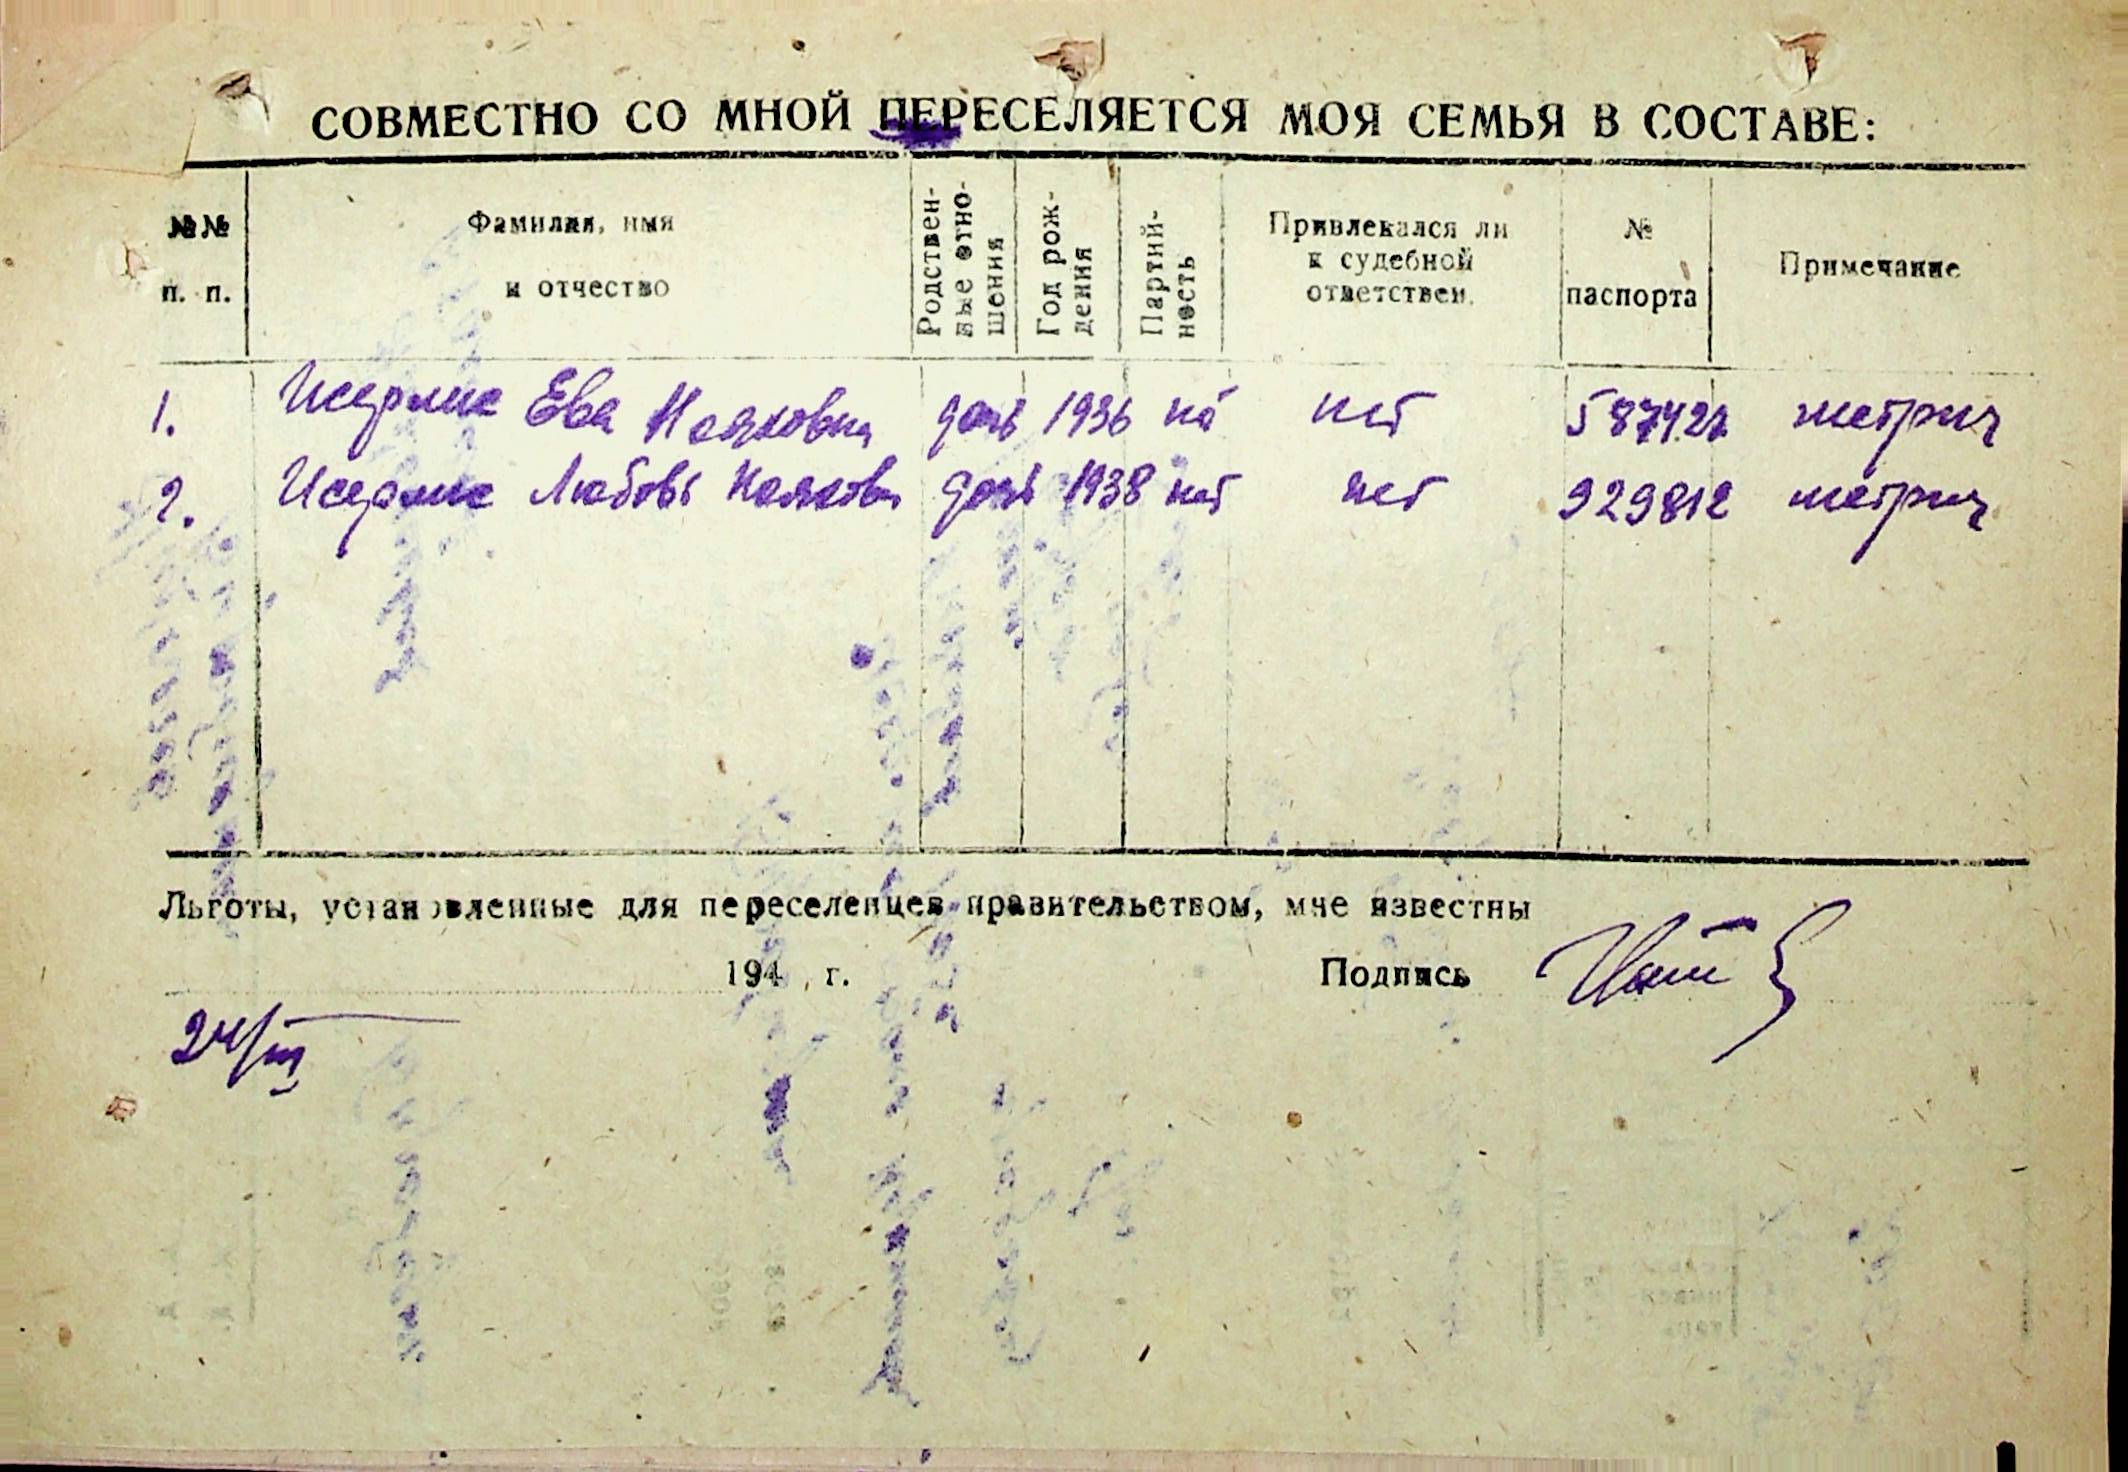 СОВМЕСТНО СО МНОЙ ПЕРЕСЕЛЯЕТСЯ МОЯ СЕМЬЯ В СОСТАВЕ:
№№ п. п.
Фамилия, имя и отчество
Родственные отношения
Год рождения
Партийность
Привлекался ли к судебной ответствен.
№ паспорта
Примечание
1. Ева дочь 1936 нет 
2. Любовь дочь 1938 нет нет 929812
Льготы, установленные для переселенцев правительством, мне известны
194 г. Подпись
24/III